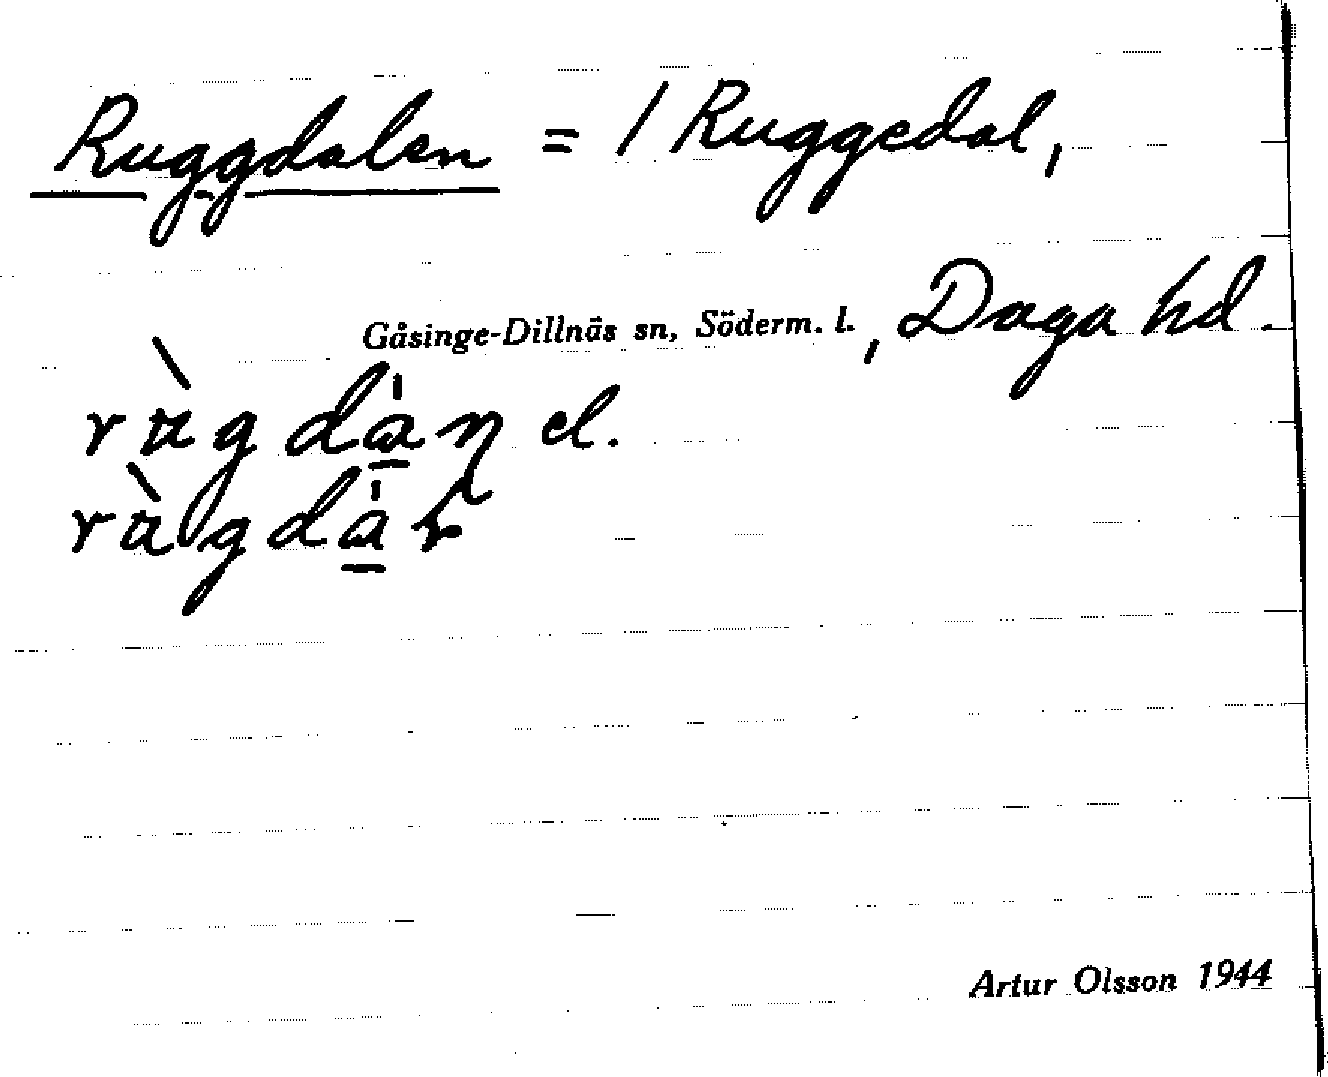 Ruggdalen = / Ruggedal,
Gåsinge-Dillnäs sn, Söderm. l., Daga hd.
el.
Artur Olsson 1944